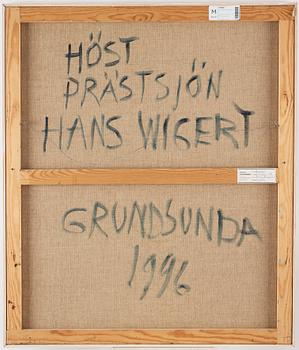 M
HÖST
PRÄSTSJÖN
HANS WIGERT
GRUNDSUNDA
1996